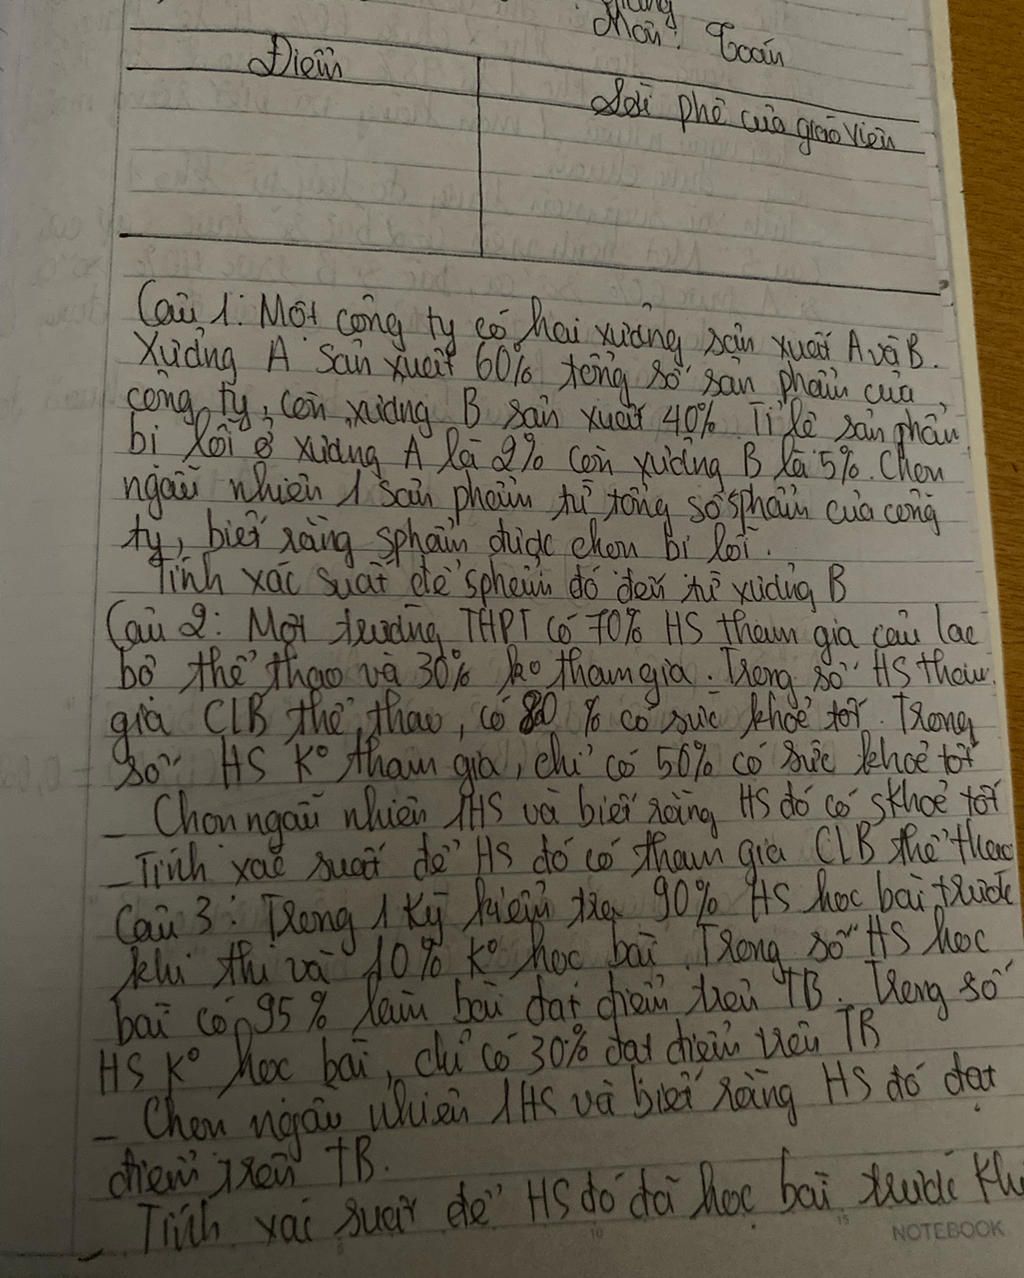 Môn: Toán
Điểm
Lời phê của giáo viên
Câu 1: Một công ty có hai xưởng sản xuất A và B.
Xưởng A sản xuất 60% tổng số sản phẩm của
công ty, còn xưởng B sản xuất 40%. Tỉ lệ sản phẩm
bị lỗi ở xưởng A là 2% còn xưởng B là 5%. Chọn
ngẫu nhiên 1 sản phẩm từ tổng số sphẩm của công
ty, biết rằng sphẩm được chọn bị lỗi.
Tính xác suất để sphẩm đó đến từ xưởng B
Câu 2: Một trường THPT có 70% HS tham gia câu lạc
bộ thể thao và 30% ko tham gia. Trong số HS tham
gia CLB thể thao, có 80 % có sức khoẻ tốt. Trong
số HS K° tham gia, chỉ có 50% có sức khoẻ tốt
_ Chọn ngẫu nhiên 1HS và biết rằng HS đó có skhoẻ tốt
_ Tính xác suất để HS đó có tham gia CLB thể thao
Câu 3: Trong 1 kỳ kiểm tra 90% HS học bài trước
khi thi và 10% K° học bài. Trong số HS học
bài có 95% làm bài đạt điểm trên TB. Trong số
HS K° học bài, chỉ có 30% đạt điểm trên TB
_ Chọn ngẫu nhiên 1HS và biết rằng HS đó đạt
điểm trên TB.
_ Tính xác suất để HS đó đã học bài trước khi
NOTEBOOK